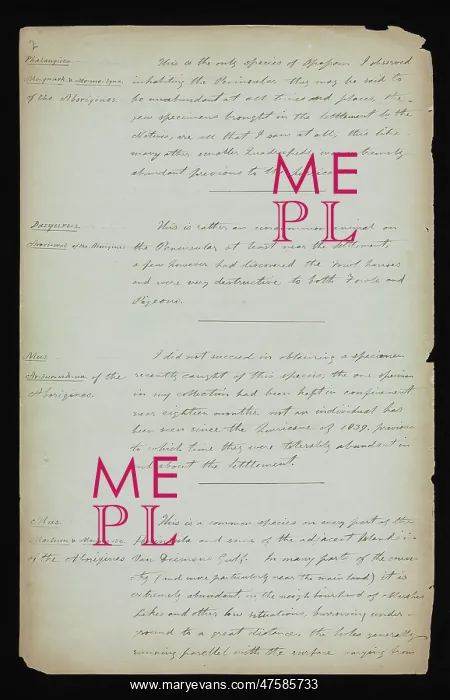 2
Phalangista
of the Aborigines
This is the only species of Opossum I observed
inhabiting the Peninsular they may be said to
be unabundant at all times and places, the
few specimens brought in the Settlement by the
Natives, are all that I saw at all, this like
many other smaller Quadrupeds, was extremely
abundant previous to the
Dasyurus
of the Aborigines
This is rather an uncommon animal on
the Peninsular at least near the Settlement,
a few however had discovered the fowl houses
and were very destructive to both Fowls and
Pigeons.
Mus
of the
Aborigines
I did not succeed in obtaining a specimen
recently caught of this species, the one specimen
in my collection had been kept in confinement
near eighteen months not an individual has
been seen since the hurricane of 1839. previous
to which time they were tolerably abundant in
and about the Settlement.
Mus
of the Aborigines
This is a common species on every part of the
Peninsula and some of the adjacent Islands in
Van Diemens Gulf. In many parts of the coun-
try (and more particularly near the main land) it is
extremely abundant, in the neighbourhood of Marshes
Lakes and other low situations, burrowing under-
ground to a great distance, the holes generally
running parallel with the surface varying from
ME
PL
ME
PL
www.maryevans.com/47585733